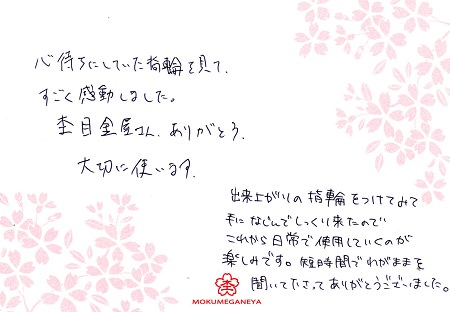 心待ちにしていた指輪を見て、
すごく感動しました。
杢目金屋さん、ありがとう。
大切に使います。
出来上がりの指輪をつけてみて
手になじんでしっくり来たので
これから日常で使用していくのが
楽しみです。短時間でわがままを
聞いて下さってありがとうございました。
MOKUMEGANEYA